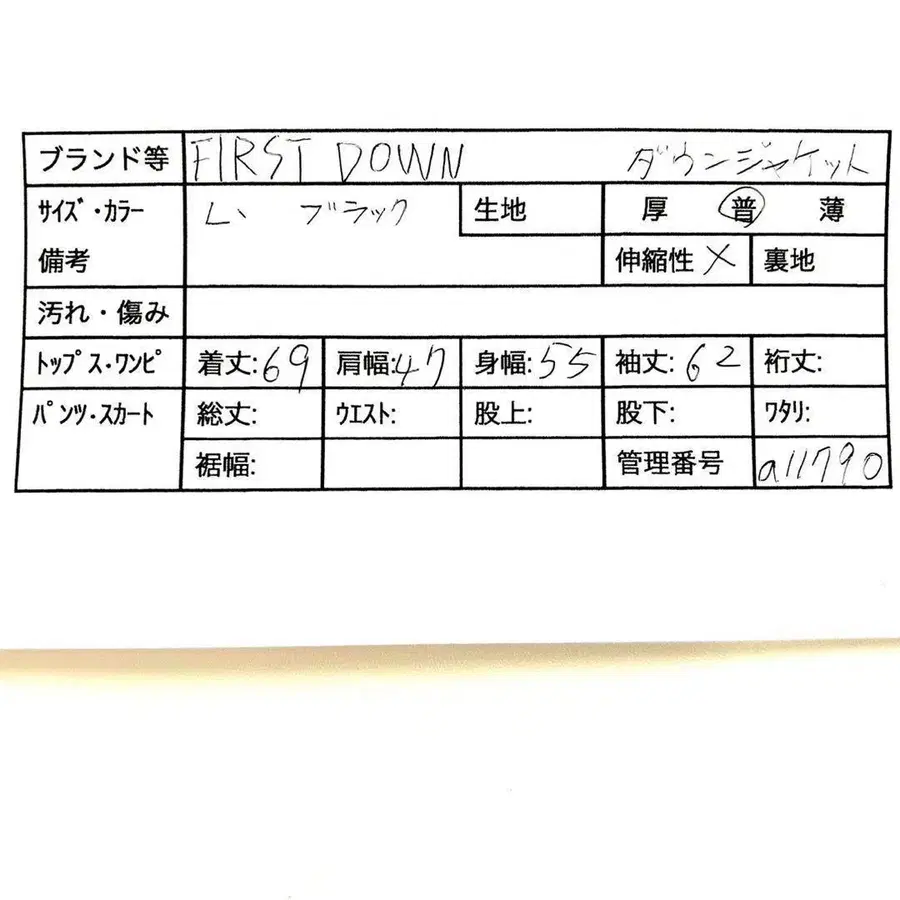 ブランド等 FIRST DOWN ダウンジャケット
サイズ・カラー L、 ブラック 生地 厚 普 薄
備考 伸縮性 × 裏地
汚れ・傷み
トップス・ワンピ 着丈:69 肩幅:47 身幅:55 袖丈:62 裄丈:
パンツ・スカート 総丈: ウエスト: 股上: 股下: ワタリ:
裾幅: 管理番号 a11790